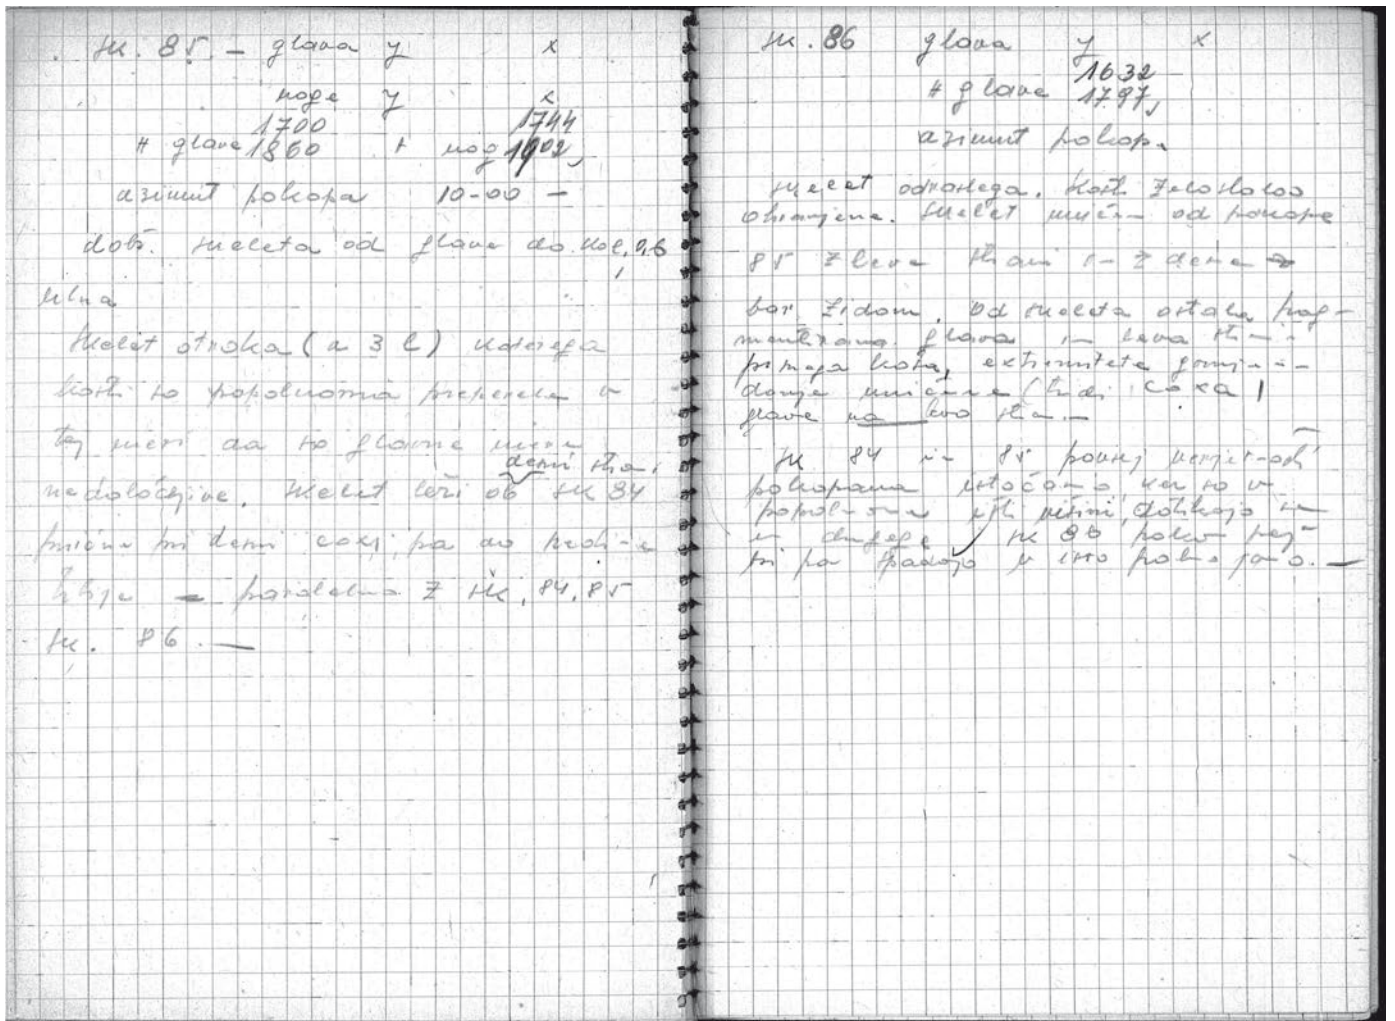 sk. 85 – glava y x
noge y x
1700 1744
# glave 1860 + nog 1902,
azimut pokopa 10-00 –
dolž. skeleta od glave do kol. 0,6
ulna
Skelet otroka (a 3 l) katerega
kosti so popolnoma preperele v
tej meri da so glavne mere
desni stra.
nedoločljive. Skelet leži ob sk 84
prične pri desni coxi, pa do sredine
tibije – paralelno z sk. 84, 85
sk. 86. —
sk. 86 glava y x
1632
# glave 1797,
azimut pokop.
skelet odraslega. Kosti zelo slabo
ohranjene. Skelet uničen od pokopa
85 z leve strani in z desne
bar. zidom. Od skeleta ostala frag-
mentirana glava in leva stran
prsnega koša, extremitete gornje in
donje uničene (tudi coxa)
glave na levo stra. —
sk 84 in 85 po vsej verjetnosti
pokopana istočasno, ker so v
popolnoma isti višini, dotikajo se
en drugega sk 86 pokop
pa spadajo v isto —